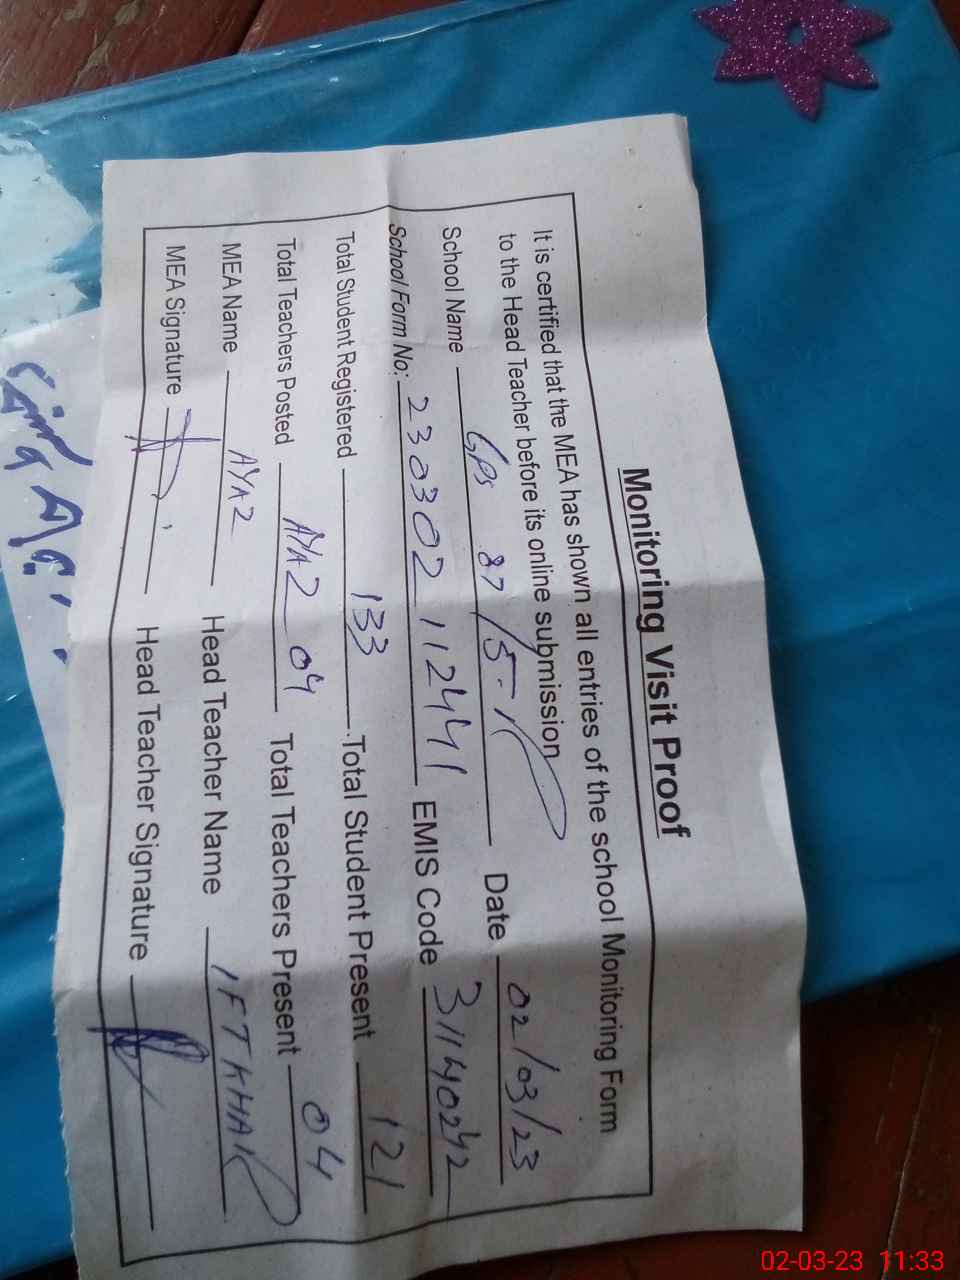 Monitoring Visit Proof
It is certified that the MEA has shown all entries of the school Monitoring Form
to the Head Teacher before its online submission
School Name GPS 87/5-R Date 02/03/23
School Form No: 230302112441 EMIS Code 31140242
Total Student Registered 133 Total Student Present 121
Total Teachers Posted AYAZ 04 Total Teachers Present 04
MEA Name AYAZ Head Teacher Name IFTKHAR
MEA Signature Head Teacher Signature
02-03-23 11:33